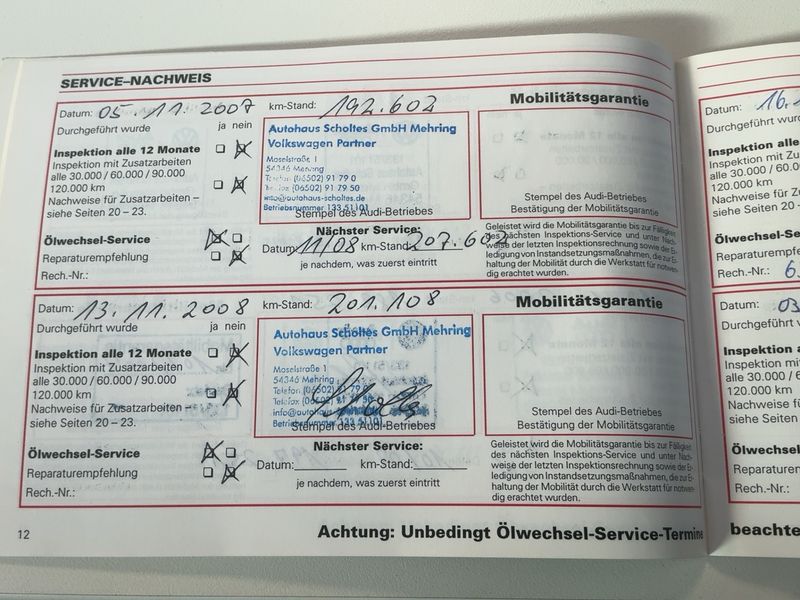 SERVICE–NACHWEIS
Datum: 05.11.2007 km-Stand: 192.602
Durchgeführt wurde ja nein
Inspektion alle 12 Monate
Inspektion mit Zusatzarbeiten
alle 30.000 / 60.000 / 90.000
120.000 km
Nachweise für Zusatzarbeiten –
siehe Seiten 20 – 23.
Ölwechsel-Service
Reparaturempfehlung
Rech.-Nr.:
Autohaus Scholtes GmbH Mehring
Volkswagen Partner
Moselstraße 1
54346 Mehring
Telefon (06502) 91 79 0
Telefax (06502) 91 79 50
info@autohaus-scholtes.de
Betriebsnummer 133 51 01
Stempel des Audi-Betriebes
Nächster Service:
Datum: 11/08 km-Stand: 207.602
je nachdem, was zuerst eintritt
Mobilitätsgarantie
Stempel des Audi-Betriebes
Bestätigung der Mobilitätsgarantie
Geleistet wird die Mobilitätsgarantie bis zur Fälligkeit
des nächsten Inspektions-Service und unter Nach-
weise der letzten Inspektionsrechnung sowie der Er-
ledigung von Instandsetzungsmaßnahmen, die zur Er-
haltung der Mobilität durch die Werkstatt für notwen-
dig erachtet wurden.
Datum: 13.11.2008 km-Stand: 201.108
Durchgeführt wurde ja nein
Inspektion alle 12 Monate
Inspektion mit Zusatzarbeiten
alle 30.000 / 60.000 / 90.000
120.000 km
Nachweise für Zusatzarbeiten –
siehe Seiten 20 – 23.
Ölwechsel-Service
Reparaturempfehlung
Rech.-Nr.:
Autohaus Scholtes GmbH Mehring
Volkswagen Partner
Moselstraße 1
54346 Mehring
Telefon (06502) 91 79 0
Telefax (06502) 91 79 50
info@autohaus
Betriebsnummer 133 51 01
Stempel des Audi-Betriebes
Nächster Service:
Datum: km-Stand:
je nachdem, was zuerst eintritt
Mobilitätsgarantie
Stempel des Audi-Betriebes
Bestätigung der Mobilitätsgarantie
Geleistet wird die Mobilitätsgarantie bis zur Fälligkeit
des nächsten Inspektions-Service und unter Nach-
weise der letzten Inspektionsrechnung sowie der Er-
ledigung von Instandsetzungsmaßnahmen, die zur Er-
haltung der Mobilität durch die Werkstatt für notwen-
dig erachtet wurden.
12
Achtung: Unbedingt Ölwechsel-Service-Termine beachte
Datum: 16.1
Durchgeführt wurd
Inspektion alle
Inspektion mit Zu
alle 30.000 / 60.0
120.000 km
Nachweise für Z
siehe Seiten 20 –
Ölwechsel-Se
Reparaturempf
Rech.-Nr.: 6.
Datum: 03
Durchgeführt
Inspektion a
Inspektion mi
alle 30.000 / 6
120.000 km
Nachweise fü
siehe Seiten
Ölwechsel-
Reparaturem
Rech.-Nr.: